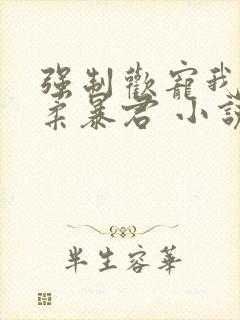 强制歡寵我
柔暴君 小說
半生容華